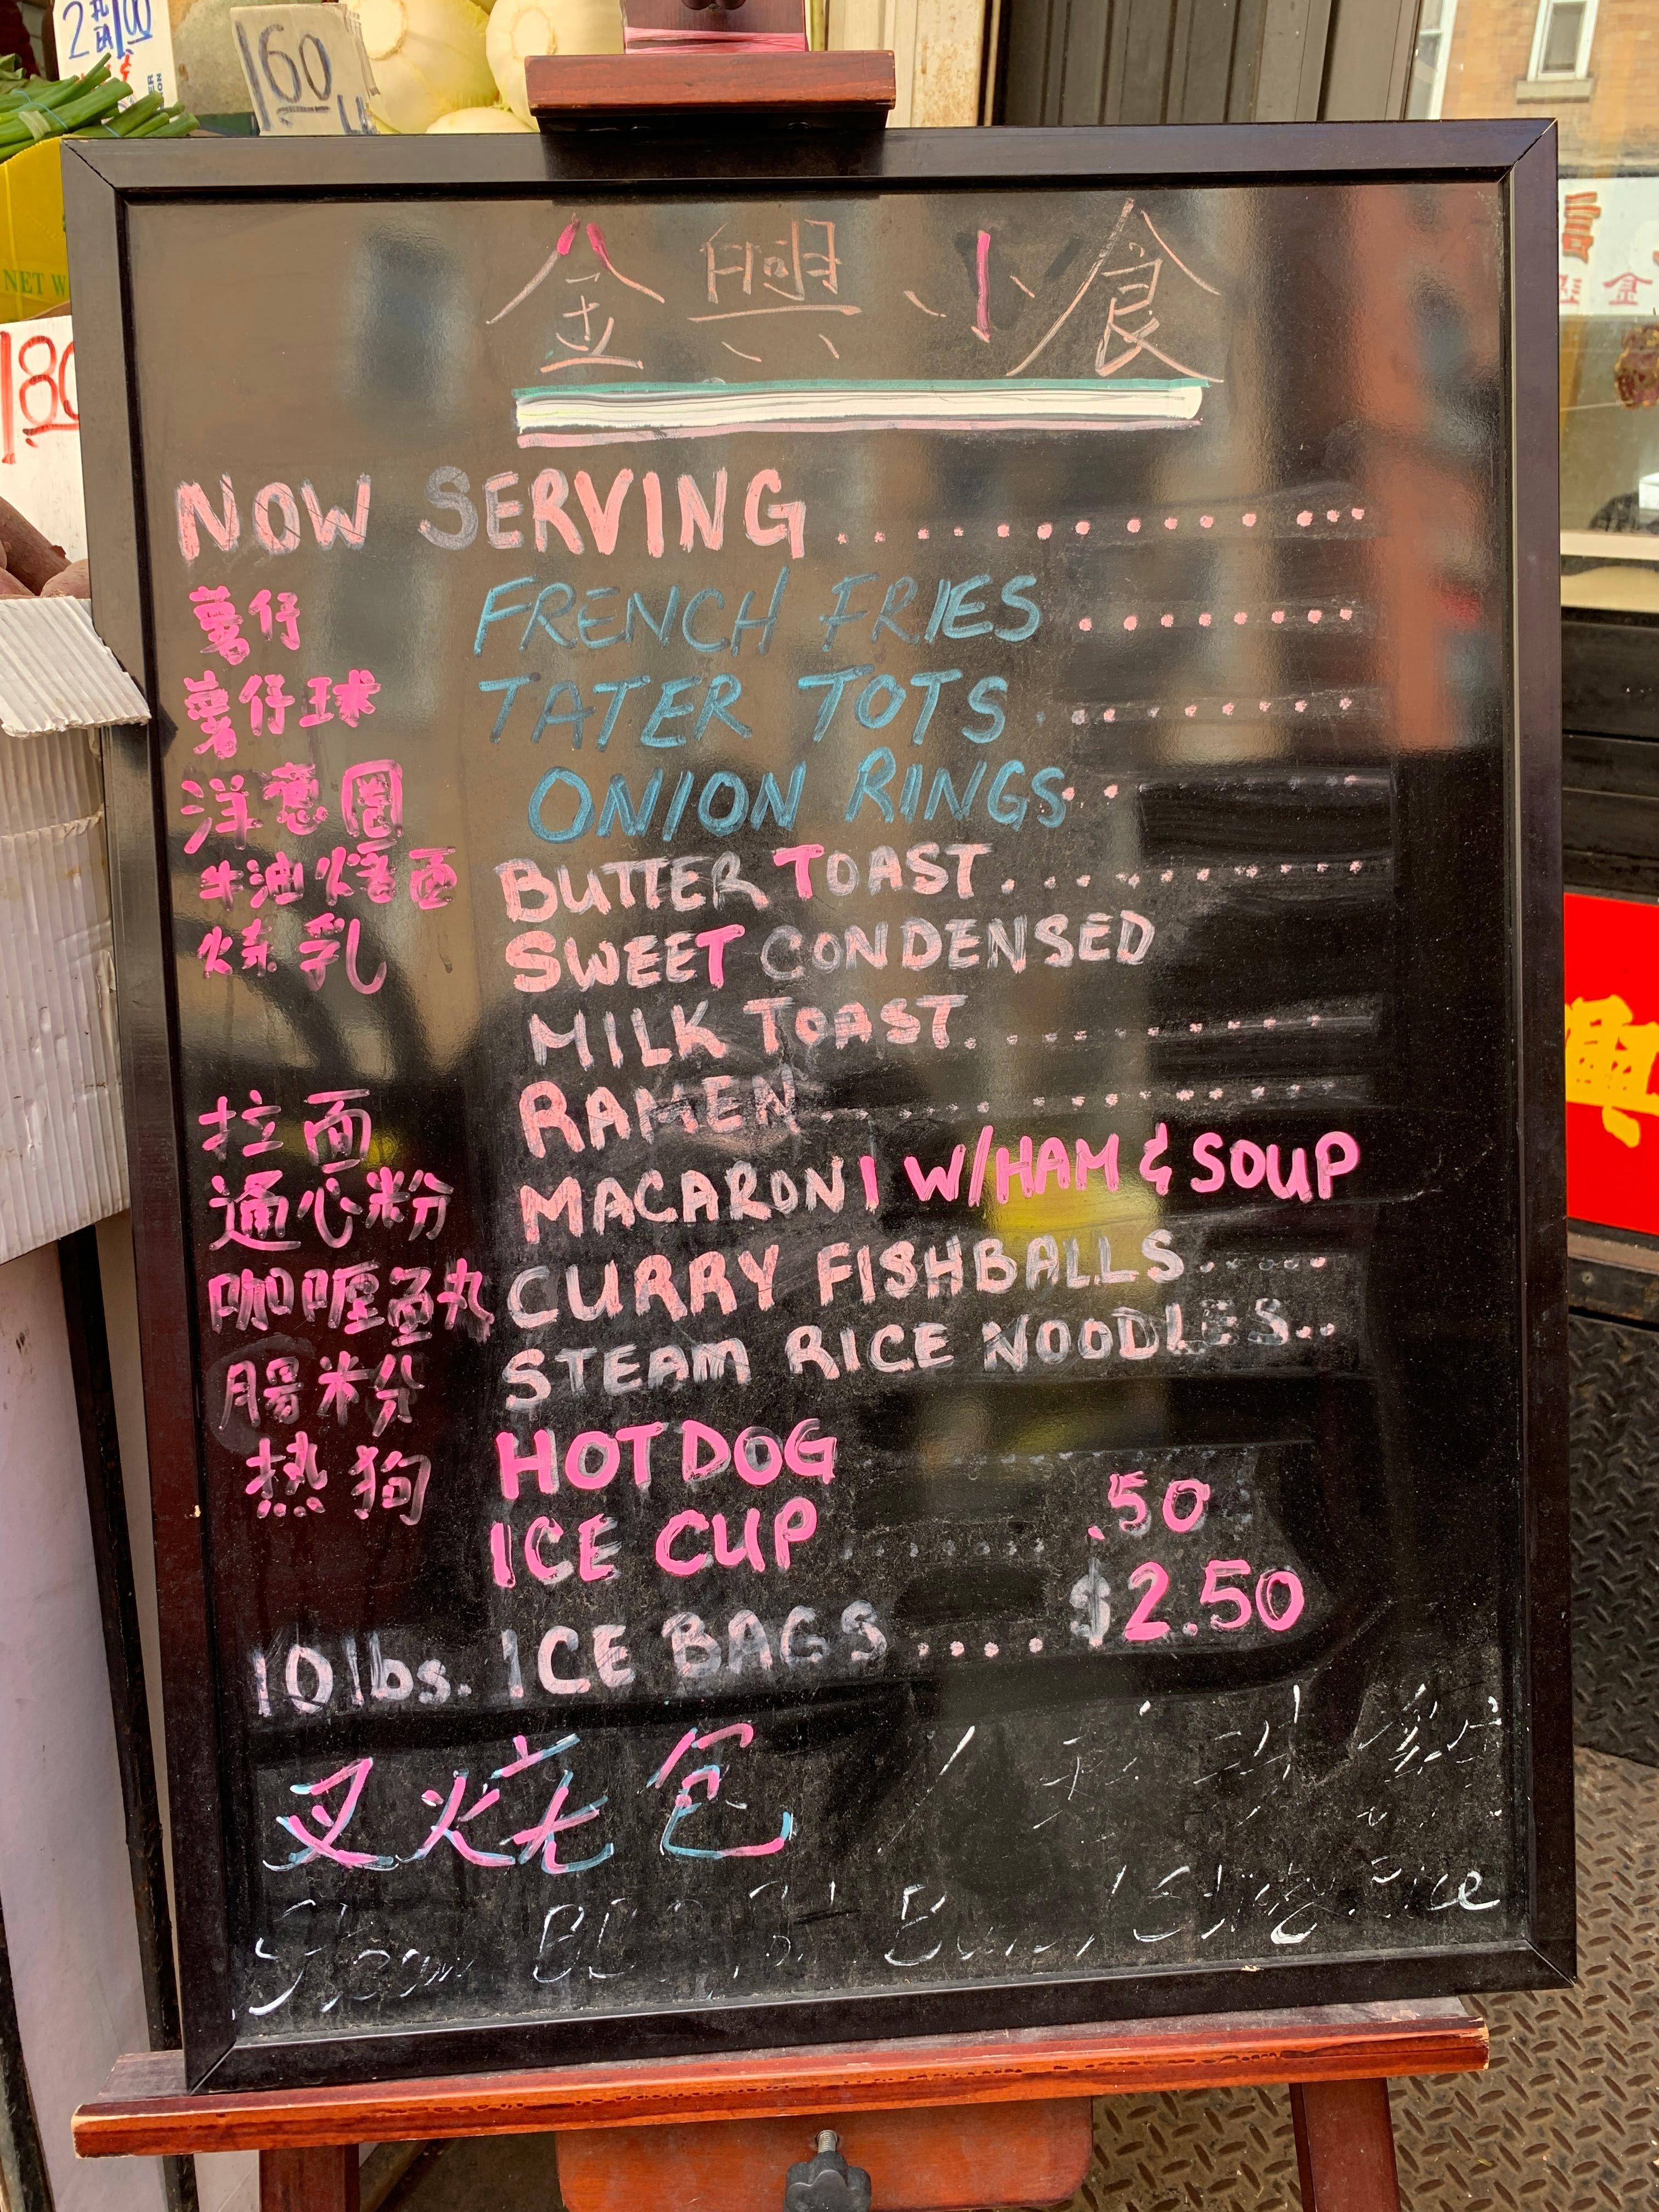 160
180
NET W
金興小食
NOW SERVING..............
薯仔 FRENCH FRIES ........
薯仔球 TATER TOTS ........
洋葱圈 ONION RINGS........
牛油烤面 BUTTER TOAST...........
炼乳 SWEET CONDENSED
MILK TOAST...........
拉面 RAMEN..............
通心粉 MACARONI W/HAM & SOUP
咖喱鱼丸 CURRY FISHBALLS......
腸米粉 STEAM RICE NOODLES..
热狗 HOTDOG
ICE CUP ........ .50
10lbs. ICE BAGS .... $2.50
叉烧包
Steam Bun / Sticky Rice